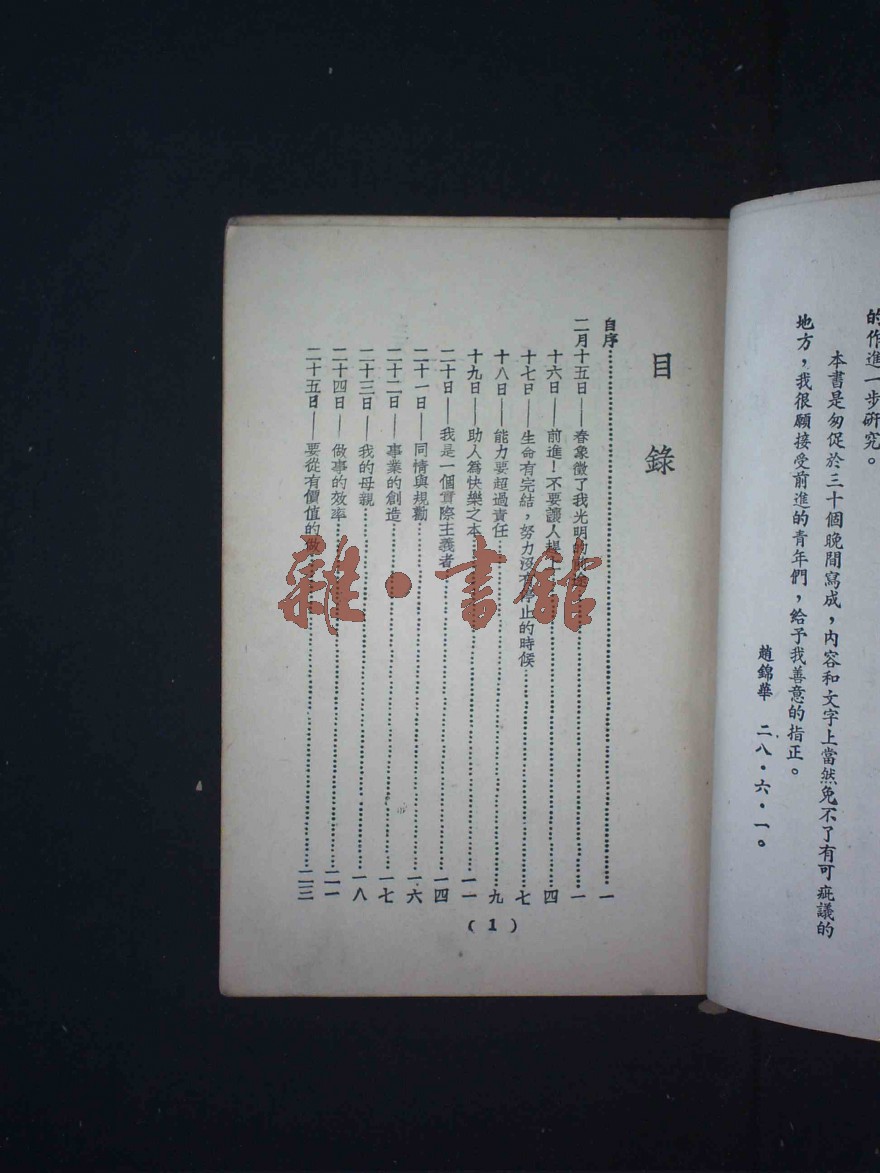 的作進一步研究。
本書是匆促於三十個晚間寫成，內容和文字上當然免不了有可疵議的
地方，我很願接受前進的青年們，給予我善意的指正。
趙錦華　二八・六・一。
目錄
自序……一
二月十五日——春象徵了我光明的前途……一
十六日——前進！不要讓人趕上……四
十七日——生命有完結，努力沒有停止的時候……七
十八日——能力要超過責任……九
十九日——助人為快樂之本……一一
二十日——我是一個實際主義者……一四
二十一日——同情與規勸……一六
二十二日——事業的創造……一七
二十三日——我的母親……一八
二十四日——做事的效率……二一
二十五日——要從有價值的做……二三
( 1 )
雜・書館